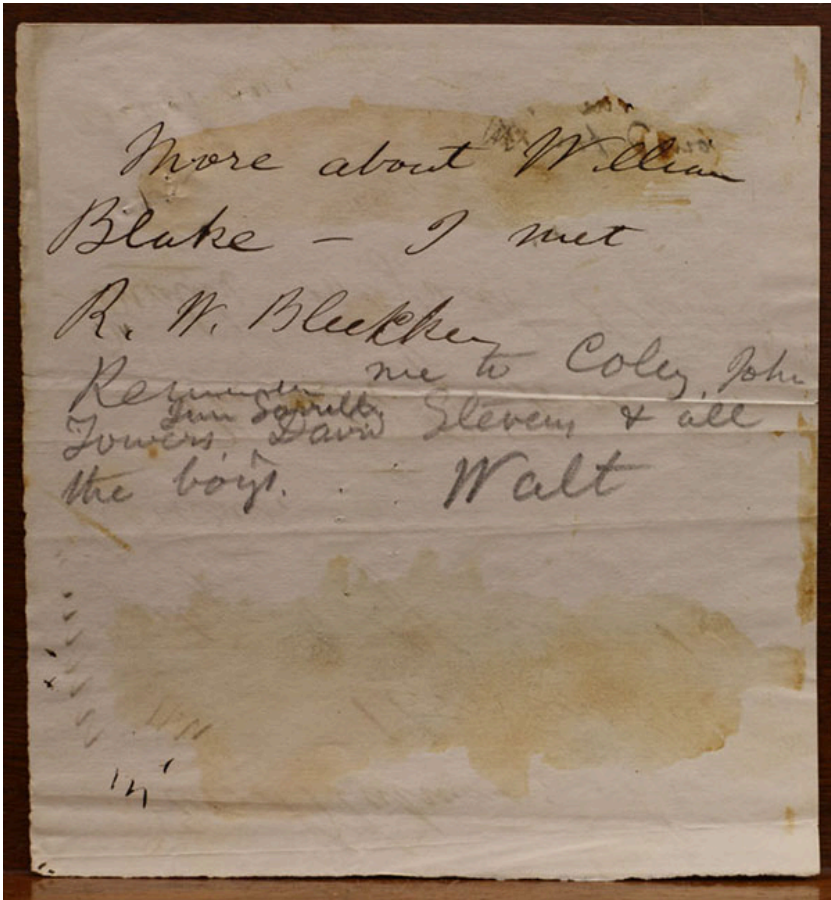 More about William
Blake – I met
R. W. Bleekker
Remember me to Coley, John
Jim Sorrill,
Towers, David Stevens & all
the boys. Walt